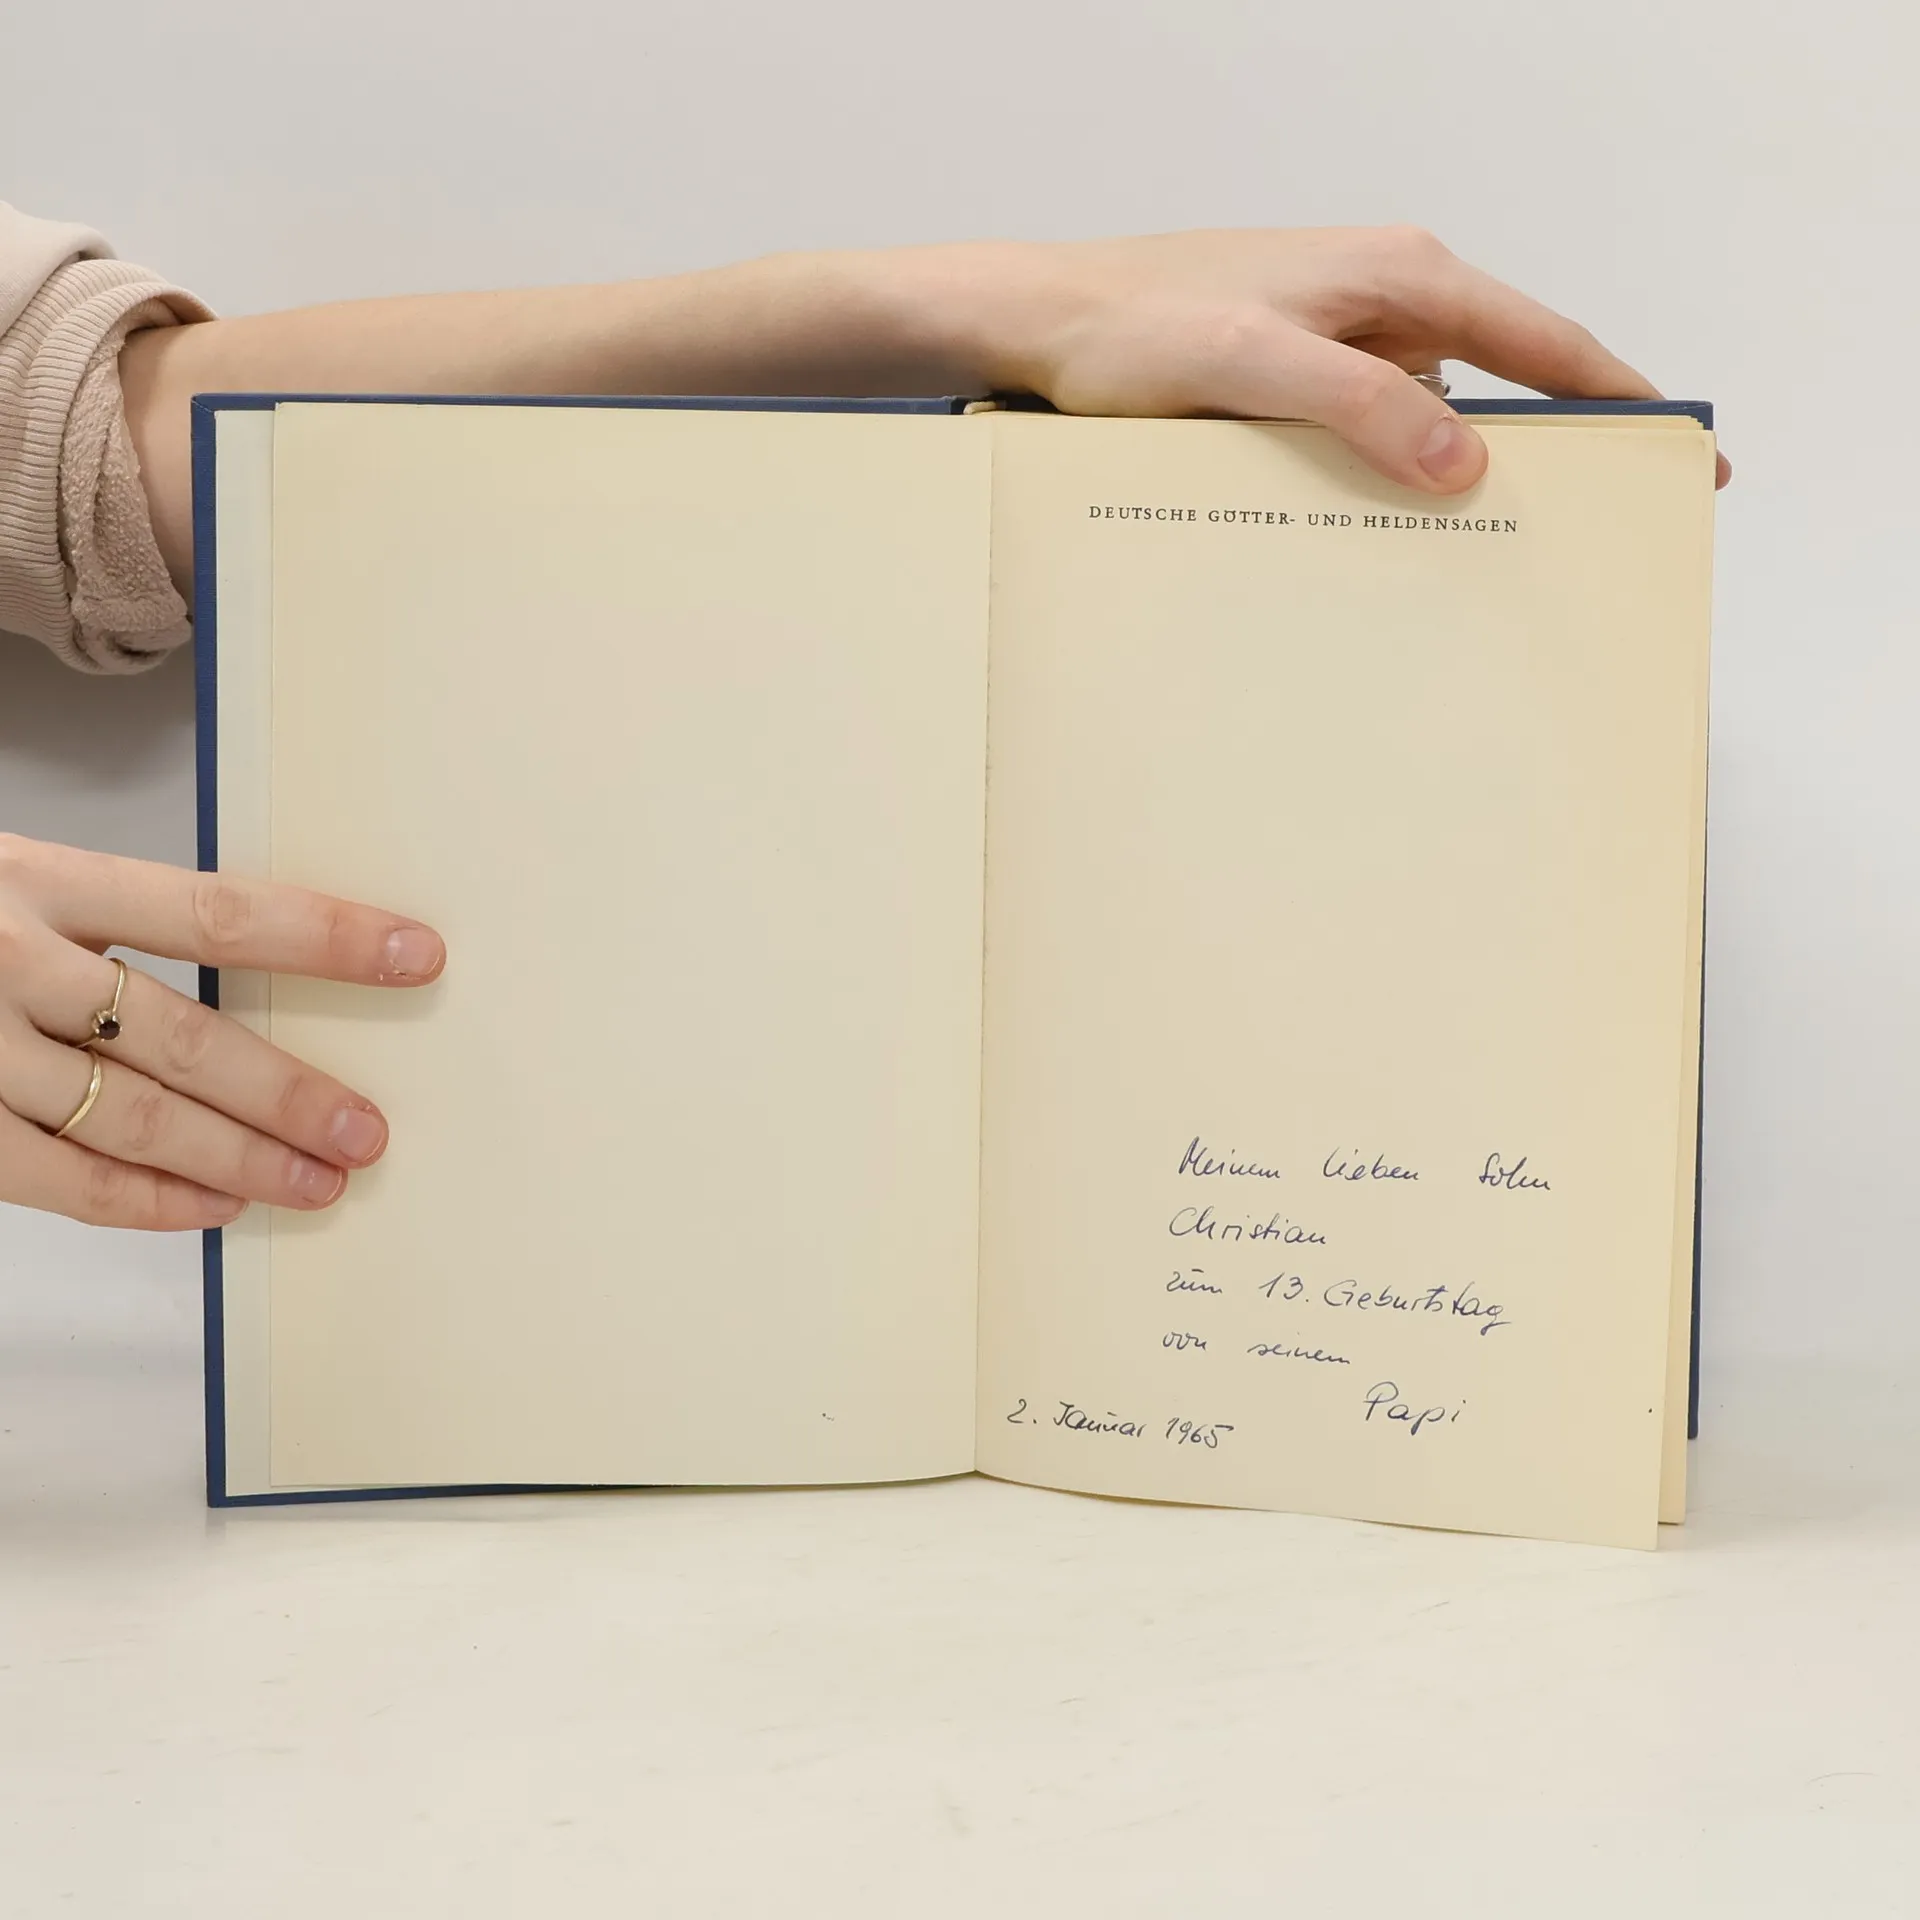 DEUTSCHE GÖTTER- UND HELDENSAGEN
Meinem lieben Sohn
Christian
zum 13. Geburtstag
von seinem
Papi
2. Januar 1965